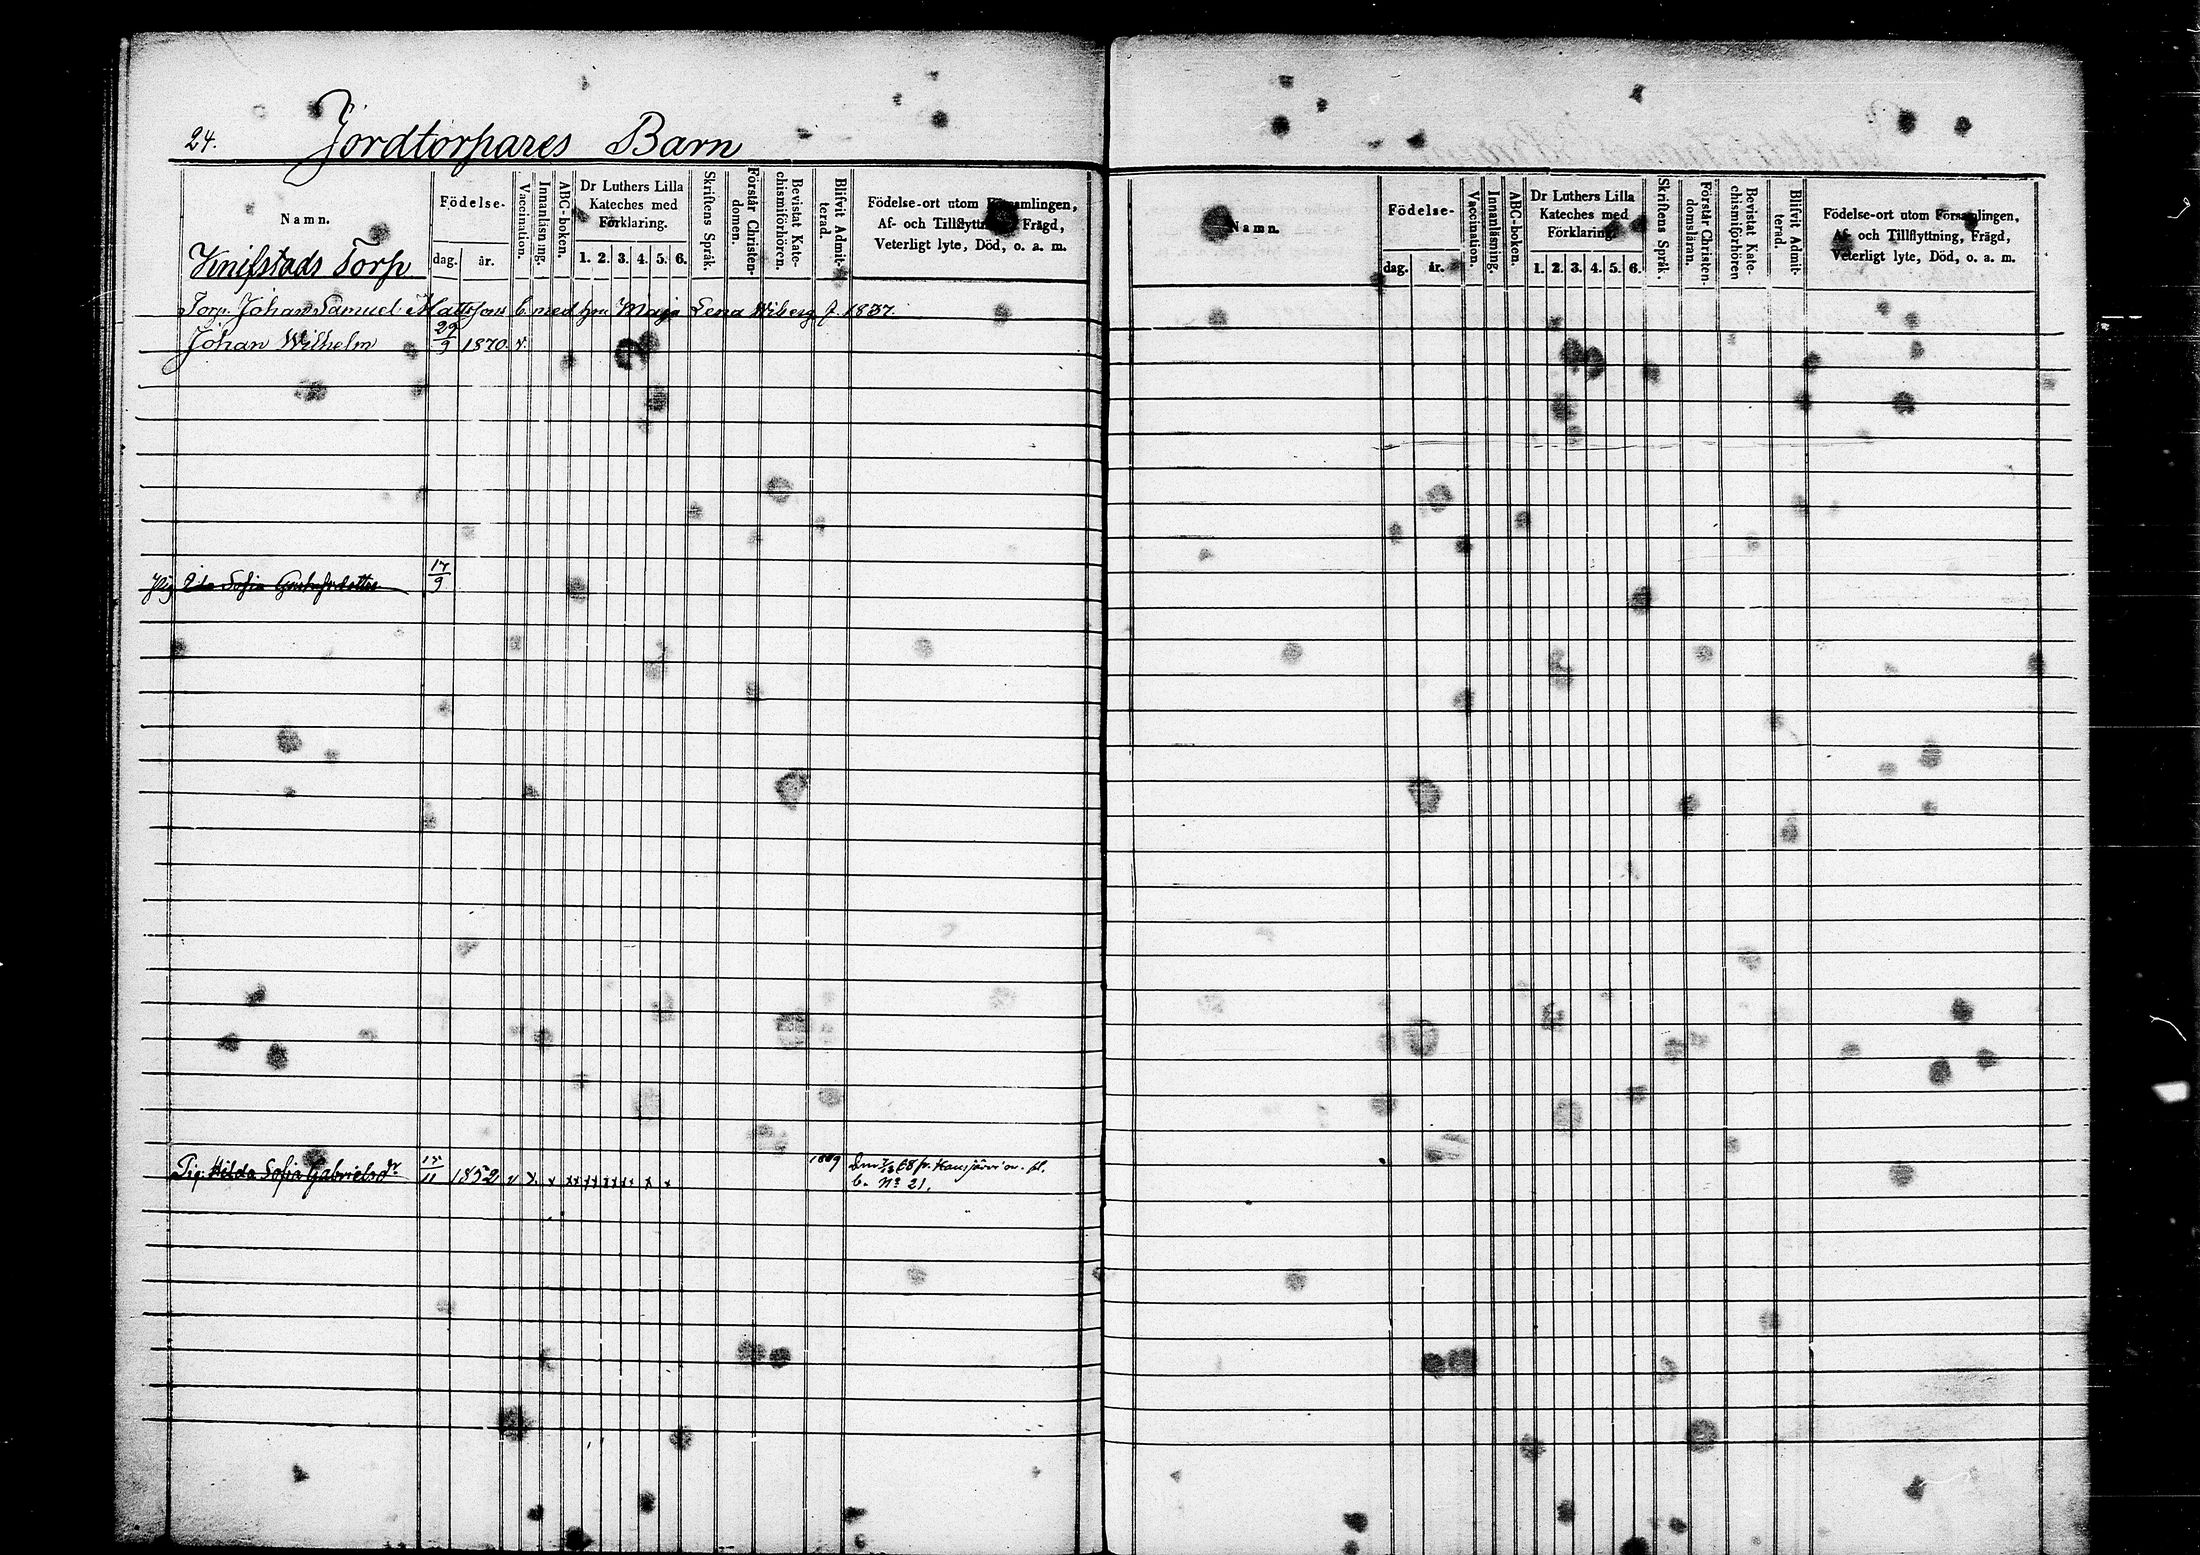 24. Jordtorpares Barn
Namn.
Födelse-
dag. år.
Vaccination.
Innanläsning.
ABC-boken.
Dr Luthers Lilla
Kateches med
Förklaring.
1. 2. 3. 4. 5. 6.
Skriftens Språk.
Förstår Christen-
domen.
Bevistat Kate-
chismiförhören.
Blifvit Admit-
terad.
Födelse-ort utom Församlingen,
Af- och Tillflyttning, Frägd,
Veterligt lyte, Död, o. a. m.
Knifstads Torp
Torp. Johan Samuel Mattsons b. med hu Maja Lena Wiberg f. 1837.
Johan Wilhelm 29/9 1870. v.
Pig Ida Sofia Gustafsdotter 17/9
Pig. Hilda Sofia Gabrielsdr 1852 v x x xx xx xx xx x x
b. No 21.
Namn.
Födelse-
dag. år.
Vaccination.
Innanläsning.
ABC-boken.
Dr Luthers Lilla
Kateches med
Förklaring
1. 2. 3. 4. 5. 6.
Skriftens Språk.
Förstår Christen-
domsläran.
Bevistat Kate-
chismiförhören
Blifvit Admit-
terad.
Födelse-ort utom Församlingen,
Af- och Tillflyttning, Frägd,
Veterligt lyte, Död, o. a. m.